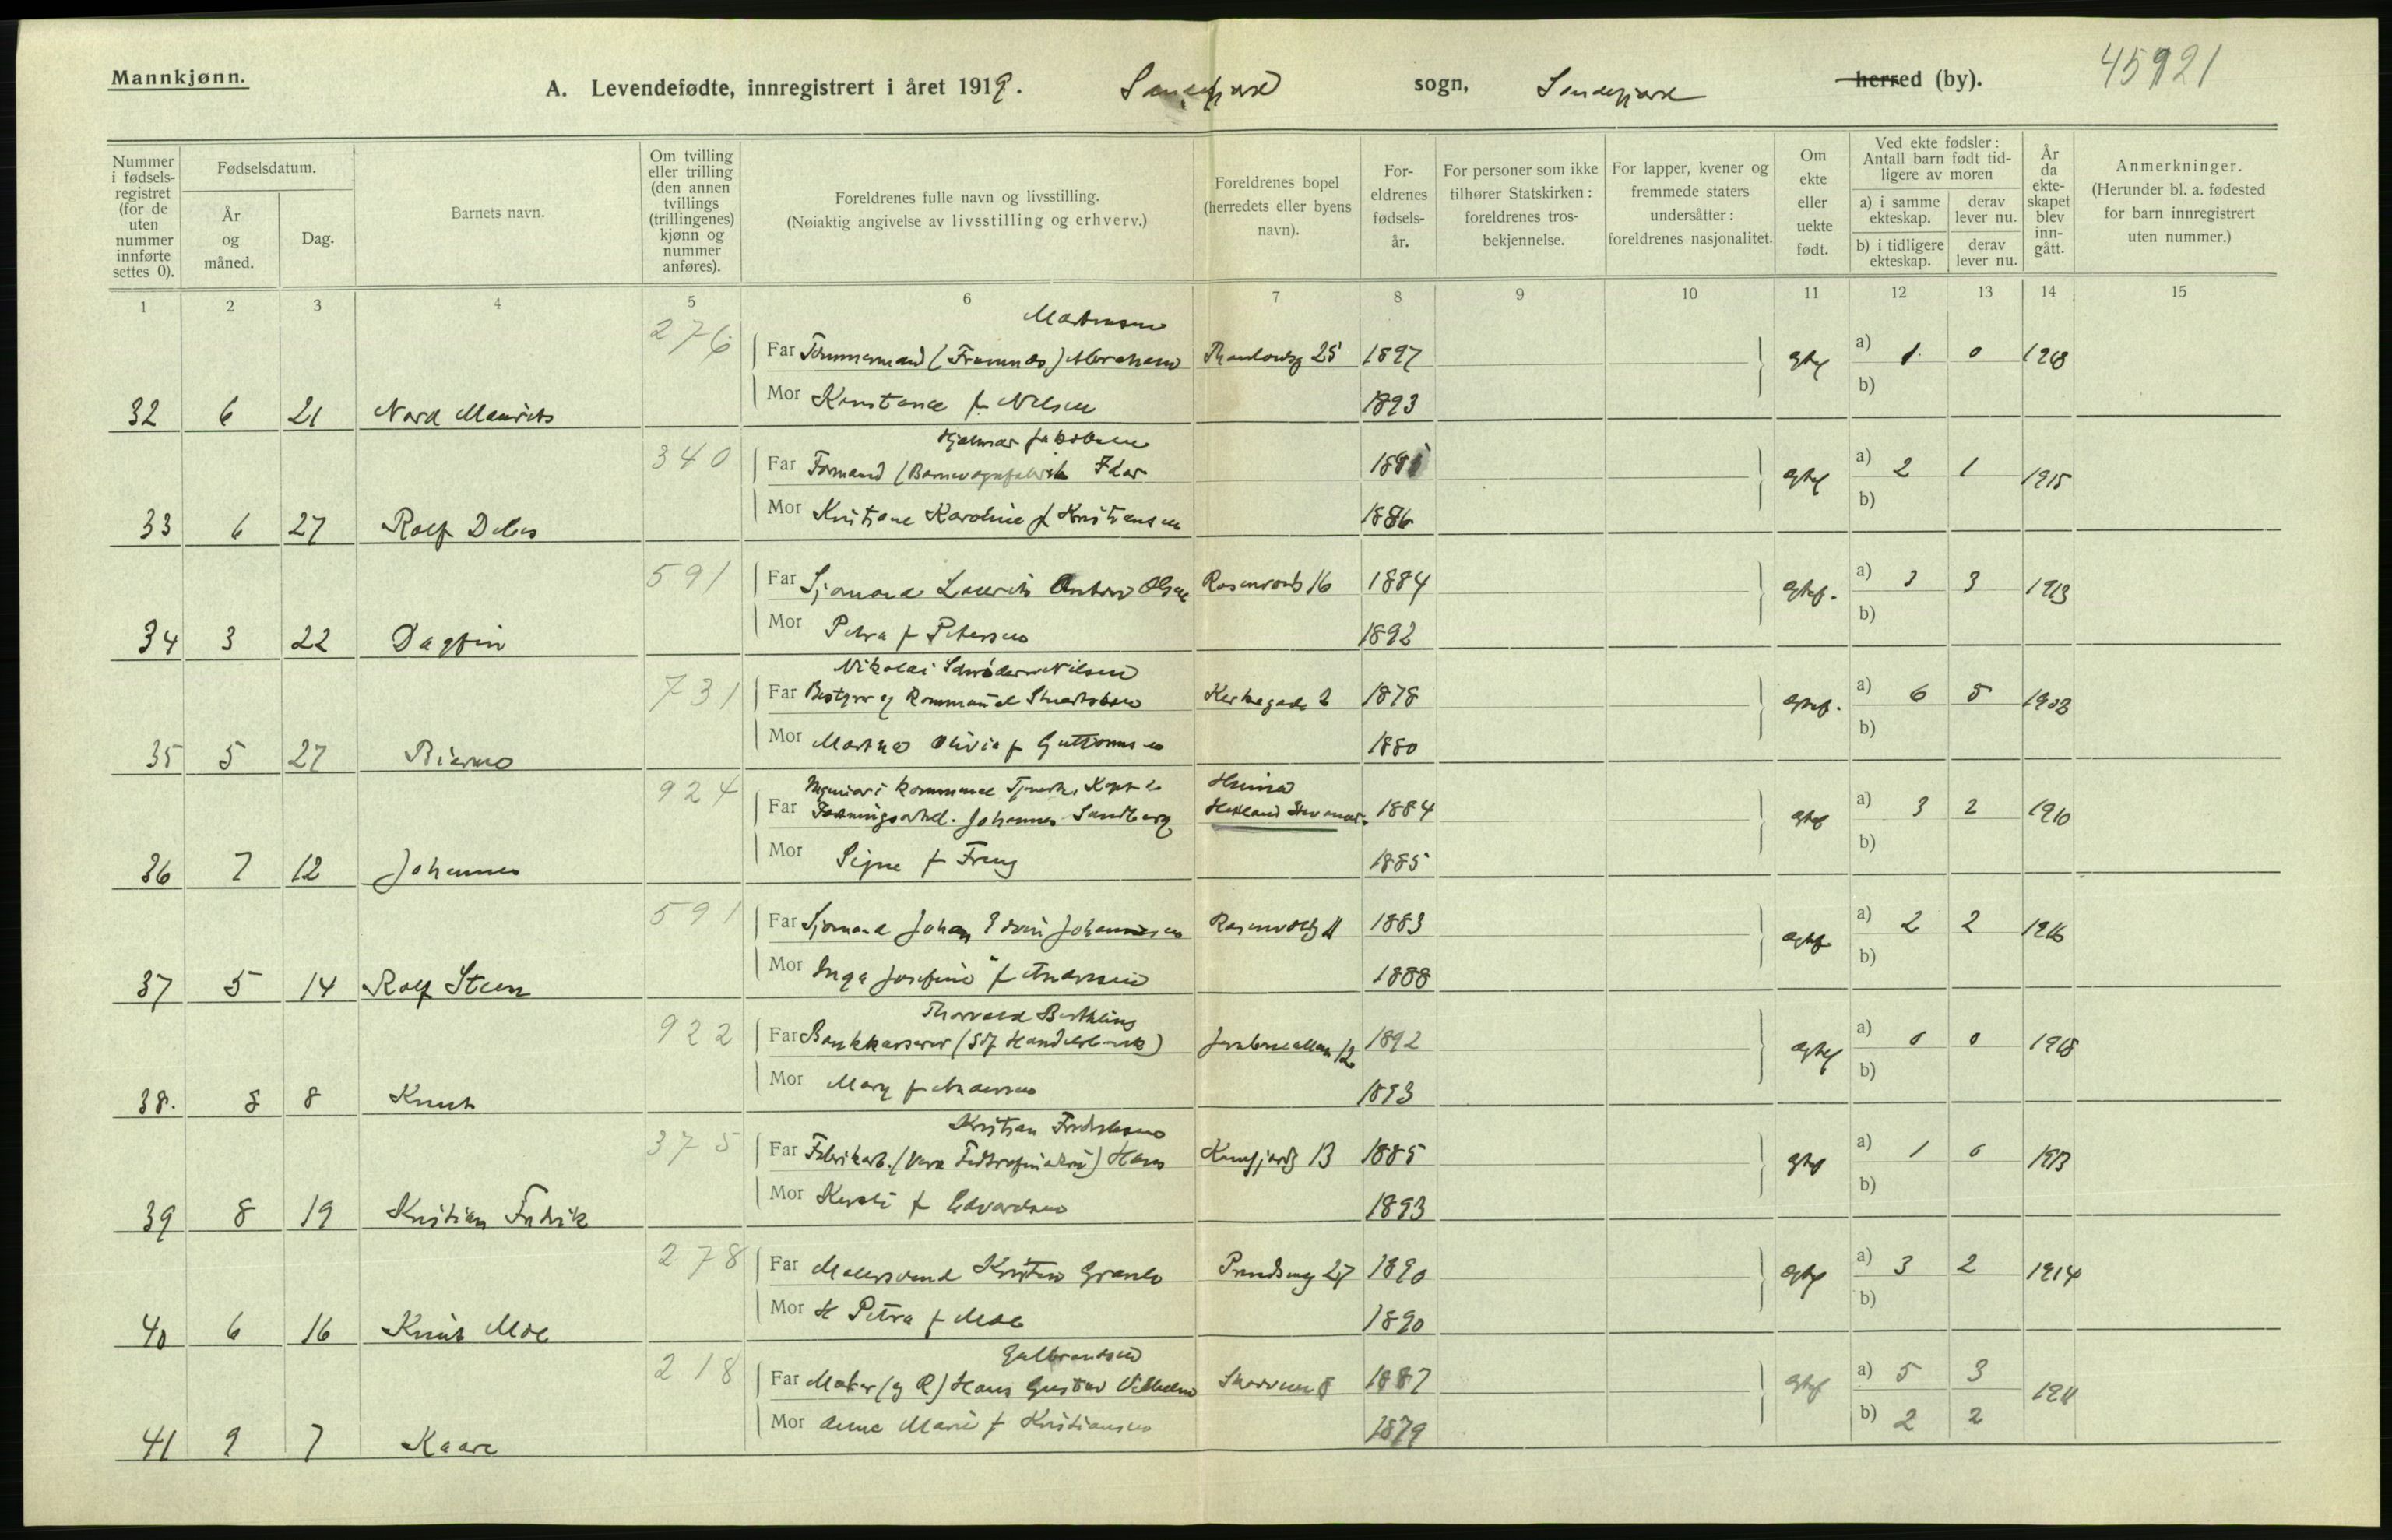 Mannkjønn.
A. Levendefødte, innregistrert i året 1919. Sandefjord sogn, Sandefjord herred (by). 45921
Nummer i fødsels-registret (for de uten nummer innførte settes 0).
Fødselsdatum.
År og måned.
Dag.
Barnets navn.
Om tvilling eller trilling (den annen tvillings (trillingenes) kjønn og nummer anføres).
Foreldrenes fulle navn og livsstilling.
(Nøiaktig angivelse av livsstilling og erhverv.)
Foreldrenes bopel (herredets eller byens navn).
For-eldrenes fødsels-år.
For personer som ikke tilhører Statskirken: foreldrenes tros-bekjennelse.
For lapper, kvener og fremmede staters undersåtter: foreldrenes nasjonalitet.
Om ekte eller uekte født.
Ved ekte fødsler: Antall barn født tid-ligere av moren
a) i samme ekteskap.
derav lever nu.
b) i tidligere ekteskap.
derav lever nu.
År da ekte-skapet blev inn-gått.
Anmerkninger.
(Herunder bl. a. fødested for barn innregistrert uten nummer.)
1 2 3 4 5 6 7 8 9 10 11 12 13 14 15
276 Martinsen
Far Tømmermand (Framnæs) Abraham Thaulowsg 25 1897 egte a) 1 0 1918
Mor Konstance f. Nilsen 1893 b)
32 6 21 Nord Maurits
340 Hjalmar Jakobsen
Far Formand (Barnevognfabrik Idar 1891 egte a) 2 1 1915
Mor Kristiane Karoline f Kristiansen 1886 b)
33 6 27 Rolf
591 Far Sjømand Laurits Anton Olsen Rosenvoldg 16 1884 egtef. a) 3 3 1913
Mor Petra f Petersen 1892 b)
34 3 22 Dagfin
731 Nikolai Schrøder Nilsen
Far Bestyrer af Kommunal Kirkegade 2 1878 egtef. a) 6 5 1903
Mor Martha Olivia f Guttormsen 1880 b)
35 5 27 Bjarne
924 Ingeniør i kommunal Tjeneste
Far Johannes Sandberg Hetland Stavanger 1884 egtef a) 3 2 1910
Mor Signe f Freng 1885 b)
36 7 12 Johannes
591 Far Sjømand Johan Edvin Johannesen Rosenvoldg 11 1883 egtef a) 2 2 1916
Mor Inga Josefine f Andersen 1888 b)
37 5 14 Rolf Steen
922 Thorvald Berthling
Far Bankkasserer (Sdf Handelsbank) Jernbanealleen 12 1892 egtef a) 0 0 1918
Mor Mary f Andersen 1893 b)
38. 8 8 Knut
375 Kristian Fredriksen
Far Fabrikarb. (Vera Fedtraffinaderi) Hans Kamfjordg 13 1885 egte a) 1 0 1913
Mor Kirsti f Edvardsen 1893 b)
39 8 19 Kristian Fredrik
278 Far Malersvend Kristen Granli Prindsensg 27 1890 egtef a) 3 2 1914
Mor H Petra f Moe 1890 b)
40 6 16 Knut Moe
218 Gulbrandsen
Far Maler (g R) Hans Gustav Vilhelm 1887 egtef a) 5 3 1911
Mor Anne Marie f Kristiansen 1879 b) 2 2
41 9 7 Kaare